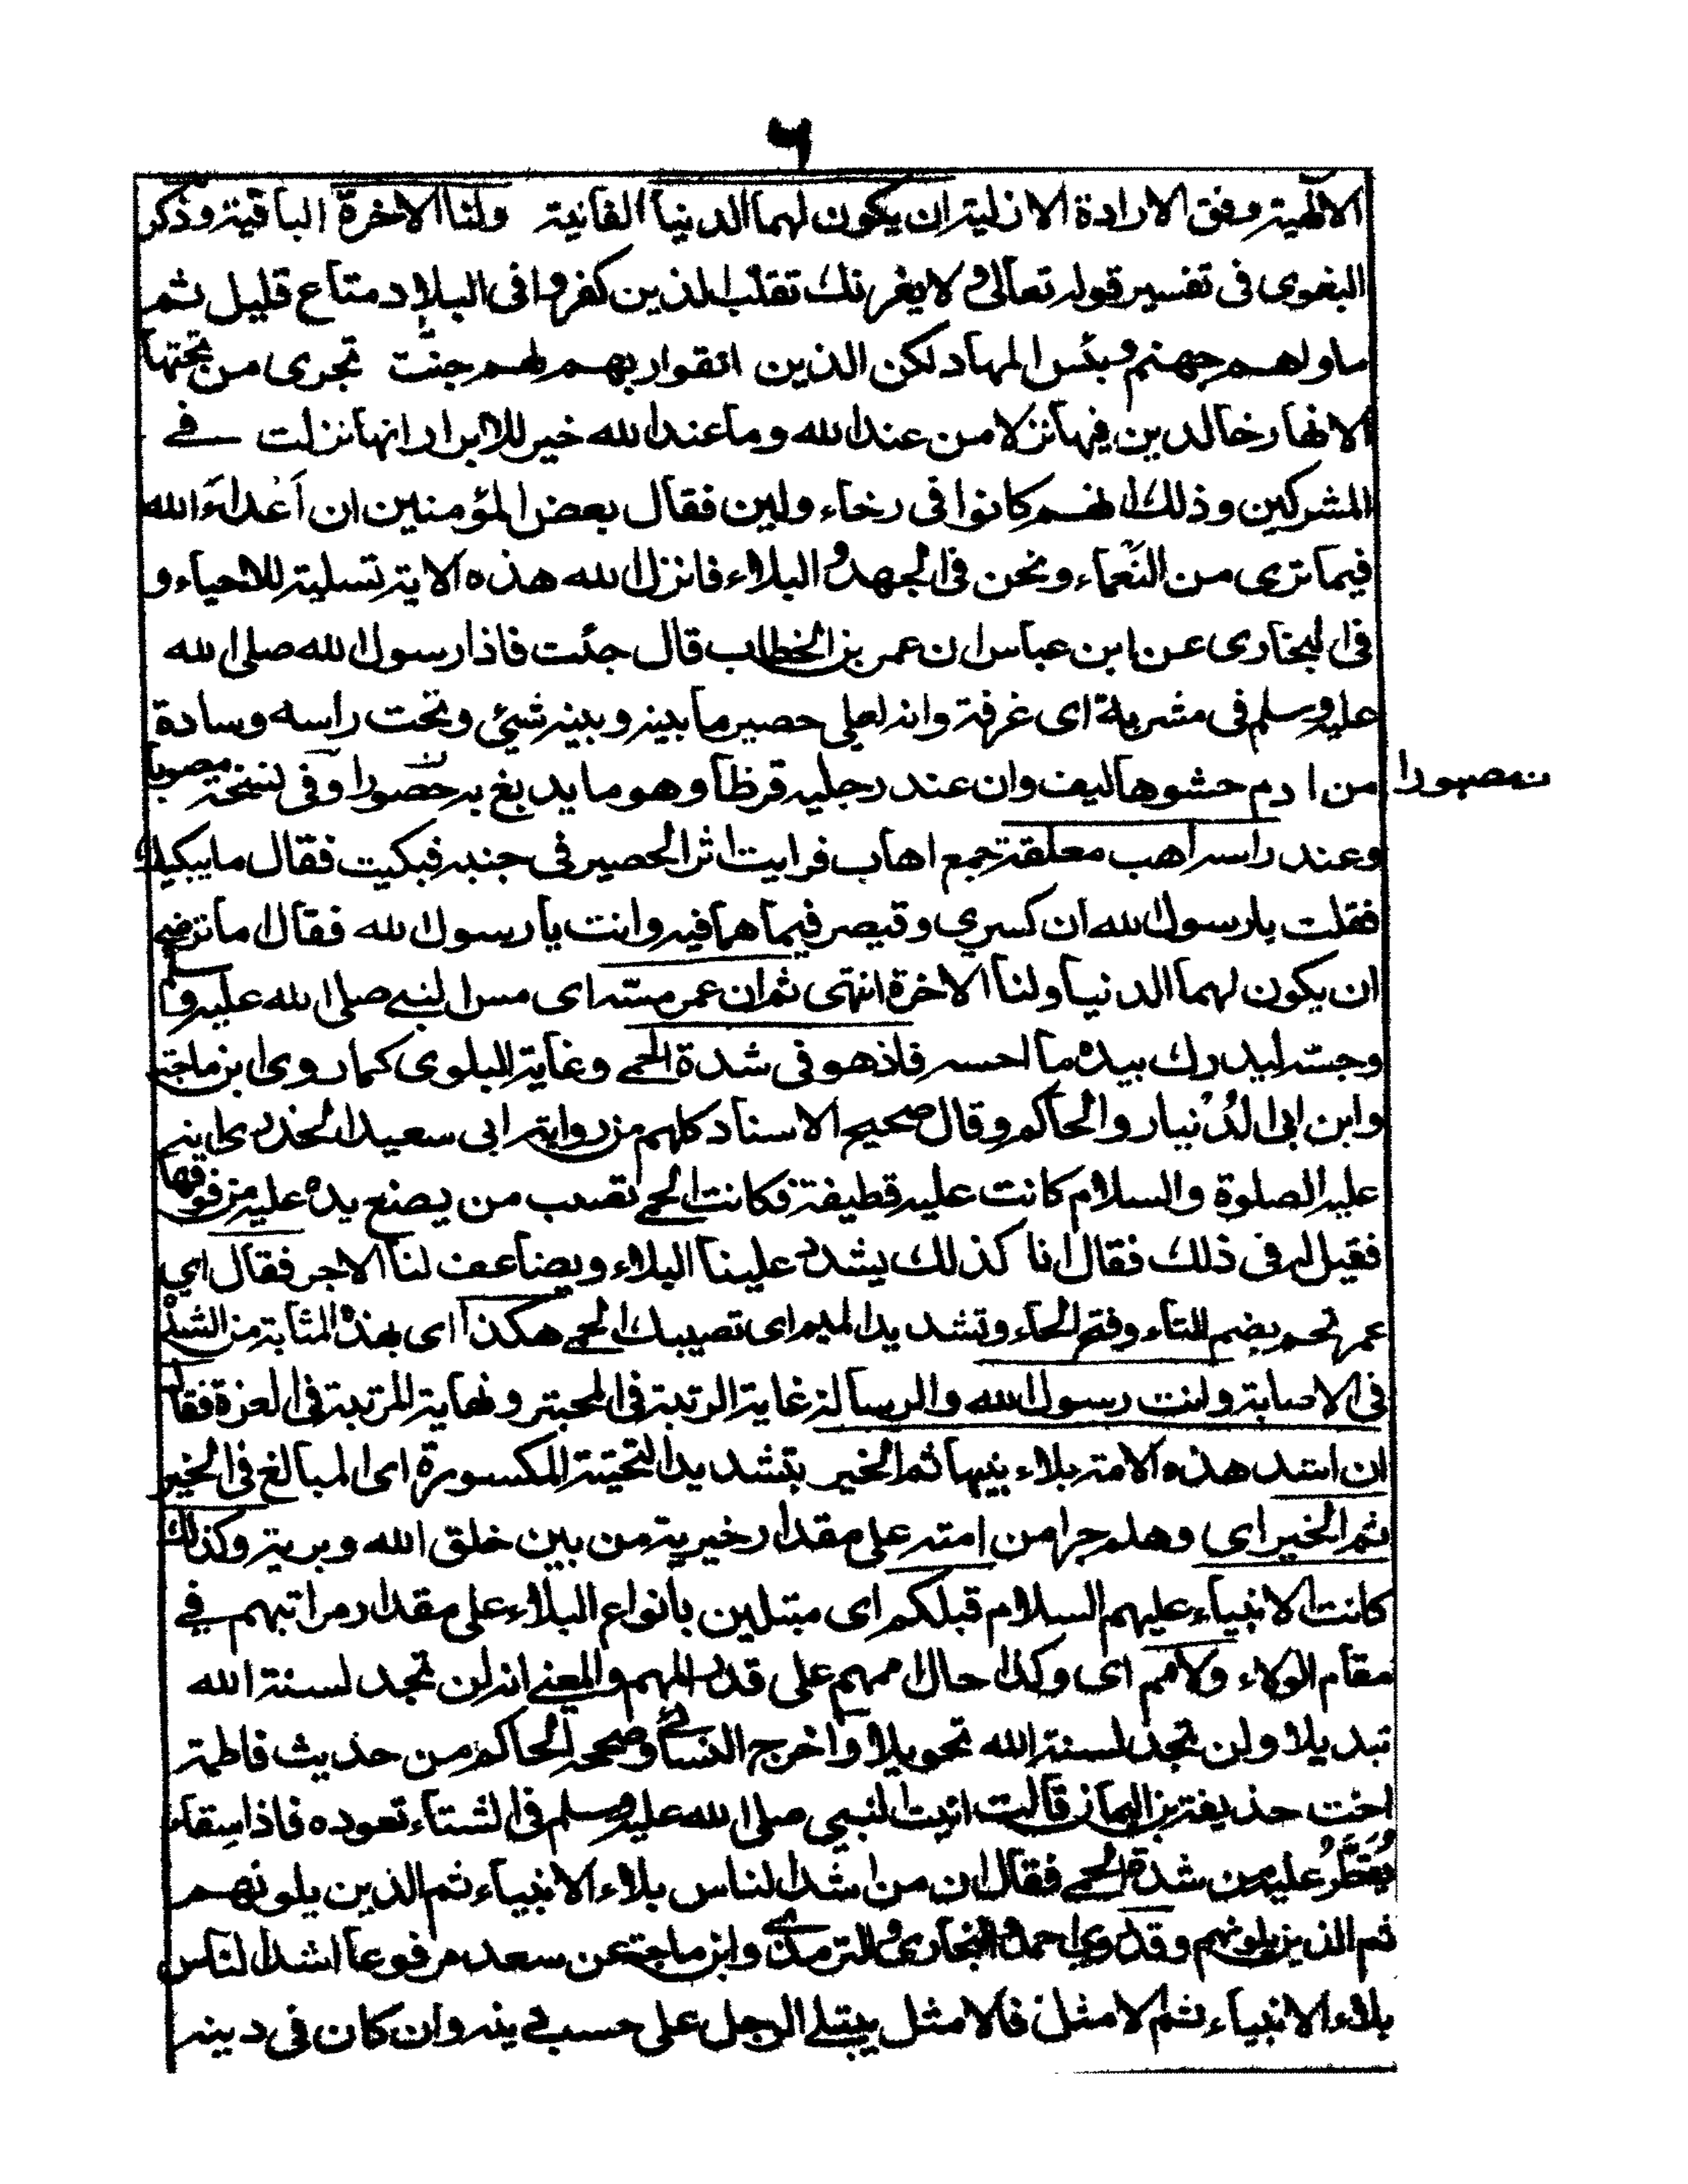 ٦
الآلهية وفق الارادة الازلية ان يكون لهما الدنيا الفانية ولنا الاخرة الباقية وذكر
البغوى فى تفسير قوله تعالى ولا يغرنك تقلب الذين كفروا فى البلاد متاع قليل ثم
ماوٰهم جهنم وبئس المهاد لكن الذين اتقوا ربهم لهم جنّٰت تجرى من تحتها
الانهار خالدين فيها نزلا من عند الله وما عند الله خير للابرار انها نزلت فى
المشركين وذلك انهم كانوا فى رخاء ولين فقال بعض المؤمنين ان اَعْداءَ الله
فيما نرى من النَّعماء ونحن فى الجهد و البلاء فانزل الله هذه الاية تسلية للاحياء و
فى البخارى عن ابن عباس ان عمر بن الخطاب قال جئت فاذا رسول الله صلى الله
عليه وسلم فى مشربة اى غرفة وانه لعلى حصير ما بينه وبينه شيئ وتحت راسه وسادة
من ادم حشوها ليف وان عند رجليه قرظا وهو ما يدبغ به حصورا وفى نسخة مصوبا
ن مصبورا
وعند راسه اهب معلقة جمع اهاب فرايت اثر الحصير فى جنبه فبكيت فقال ما يبكيك
فقلت يا رسول الله ان كسرى وقيصر فيما هما فيه وانت يا رسول الله فقال اما ترضى
ان يكون لهما الدنيا ولنا الاخرة انتهى ثم ان عمر مسّه اى مس النبى صلى الله عليه وسلم
وجسّه ليدرك بيده ما احسه فاذ هو فى شدة الحمى وغاية البلوى كما روى ابن ماجة
وابن ابى الدُنْيا والحاكم وقال صحيح الاسناد كلهم من رواية ابى سعيد الخدرى انه
عليه الصلوة والسلام كانت عليه قطيفة فكانت الحمى تصب من يضع يده عليه من فوقها
فقيل له فى ذلك فقال انا كذلك يشدد علينا البلاء ويضاعف لنا الاجر فقال اى
عمر تحم بضم التاء وفتح الحاء وتشديد الميم اى تصيبك الحمى هكذا اى بهذه المثابة من الشدة
فى الاصابة وانت رسول الله والرسالة غاية الرتبة فى المحبة ونهاية المرتبة فى العزة فقال
ان اشد هذه الامة بلاء نبيها ثم الخير بتشديد التحتية المكسورة اى المبالغ فى الخير
ثم الخير اى وهلم جرا من امته على مقدار خيرية من بين خلق الله وبرية وكذلك
كانت الانبياء عليهم السلام قبلكم اى مبتلين بانواع البلاء على مقدار مراتبهم فى
مقام الولاء والامم اى وكذا حال اممهم على قدر المهم والمعنى انه لن تجد لسنة الله
تبديلا ولن تجد لسنة الله تحويلا واخرج النسائى وصححه الحاكم من حديث فاطمة
اخت حذيفة بن اليمان قالت اتيت النبى صلى الله عليه وسلم فى الشتاء نعوده فاذا سقاء
يُقَطَّرُ عليه من شدة الحمى فقال ان من اشد الناس بلاء الانبياء ثم الذين يلونهم
ثم الذين يلونهم وقد روى احمد والبخارى والترمذى وابن ماجة عن سعد مرفوعا اشد الناس
بلاء الانبياء ثم الامثل فالامثل يبتلى الرجل على حسب دينه وان كان فى دينه